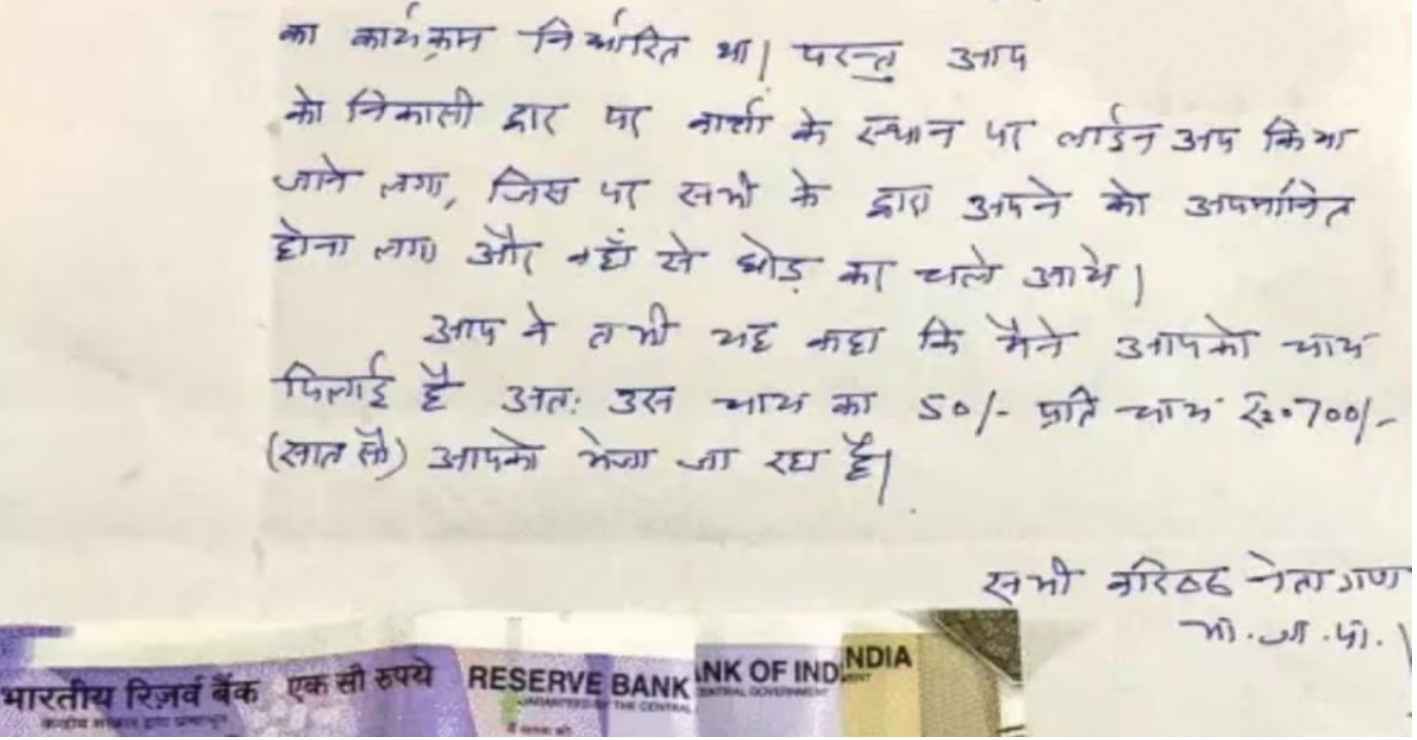 का कार्यक्रम निर्धारित था। परन्तु आप
को निकासी द्वार पर वार्ता के स्थान पर लाईन अप किया
जाने लगा, जिस पर सभी के द्वारा अपने को अपमानित
होना लगा और वहाँ से छोड़ कर चले आये।
आप ने तभी यह कहा कि मैने आपको चाय
पिलाई है अतः उस चाय का 50/- प्रति चाय रु० 700/-
(सात सौ) आपको भेजा जा रहा है।
सभी वरिष्ठ नेतागण
भा.ज.पा.
भारतीय रिज़र्व बैंक एक सौ रुपये RESERVE BANK NK OF IND NDIA
THE CENTRAL